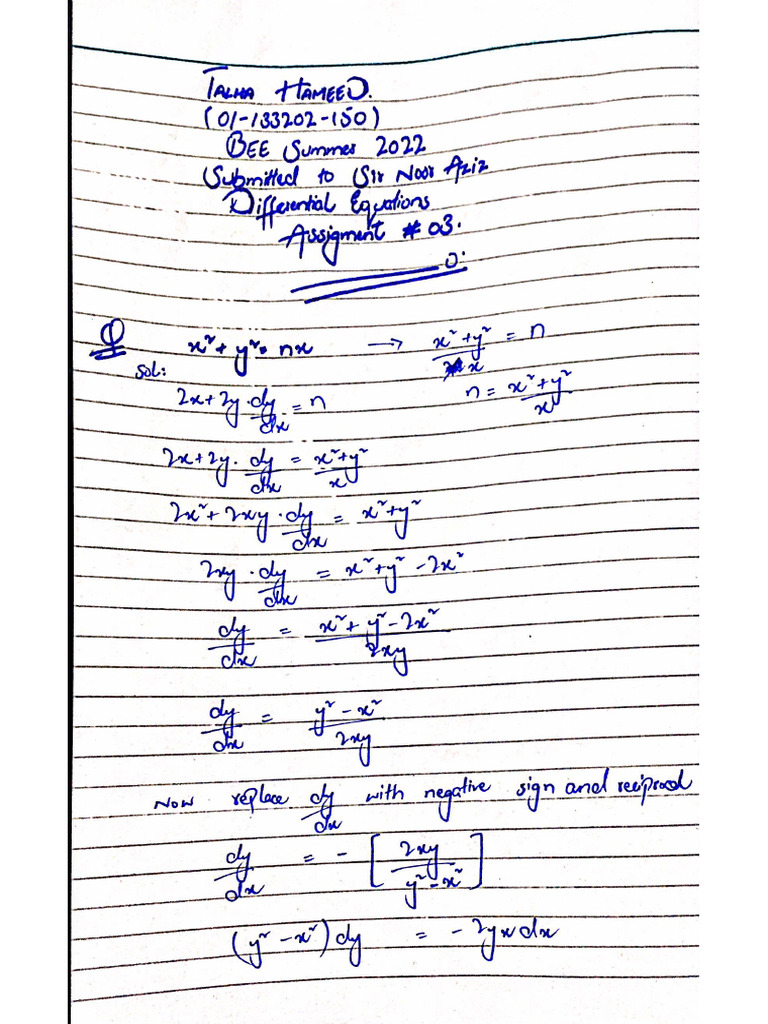 TALHA HAMEED.
(01-133202-150)
BEE Summer 2022
Submitted to Sir Noor Aziz
Differential Equations
Assigment # 03.
Q x² + y² = nx → x² + y² / x = n
Sol:
n = x² + y² / x
2x + 2y · dy/dx = n
2x + 2y · dy/dx = x² + y² / x
2x² + 2xy · dy/dx = x² + y²
2xy · dy/dx = x² + y² - 2x²
dy/dx = x² + y² - 2x² / 2xy
dy/dx = y² - x² / 2xy
Now replace dy/dx with negative sign and reciprocal
dy/dx = - [ 2xy / y² - x² ]
(y² - x²) dy = - 2yx dx